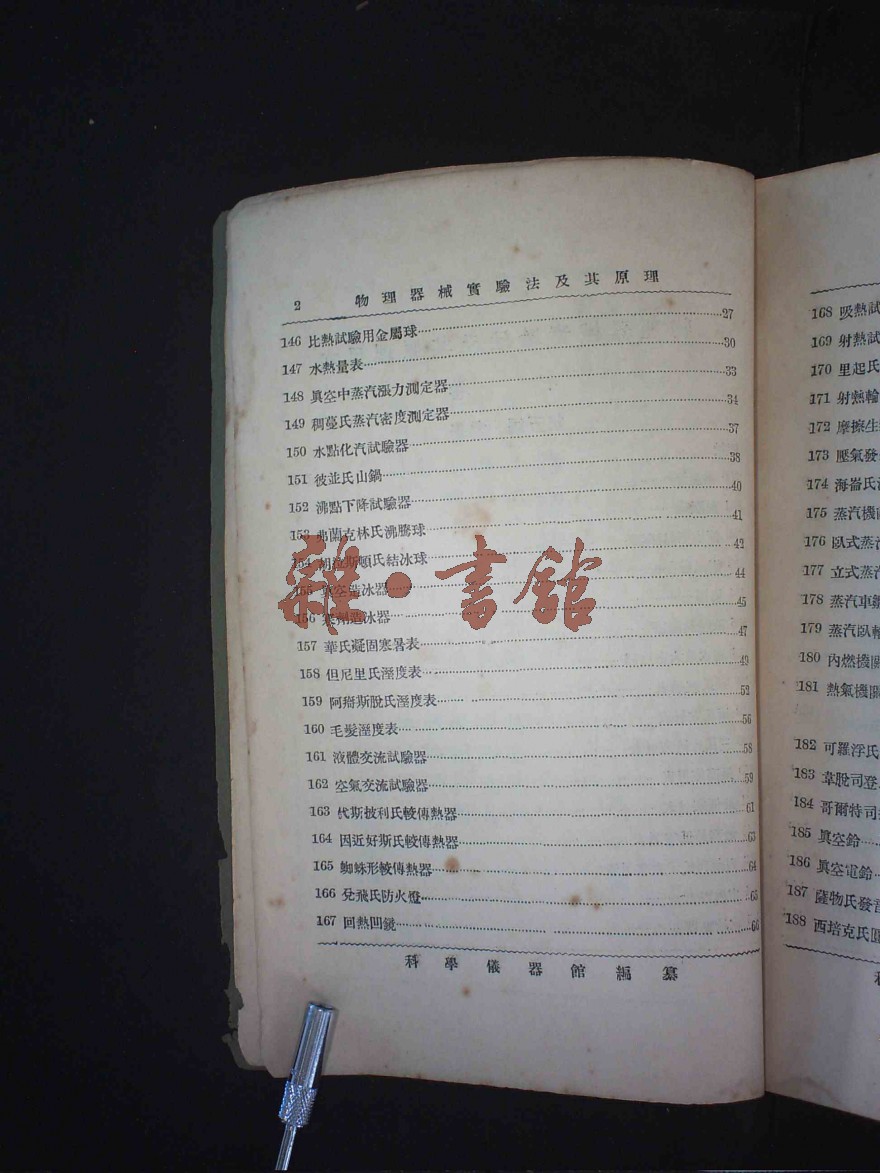 2 物理器械實驗法及其原理
146 比熱試驗用金屬球 27
147 水熱量表 30
148 眞空中蒸汽漲力測定器 33
149 稠蔓氏蒸汽密度測定器 34
150 水點化汽試驗器 37
151 彼並氏山鍋 38
152 沸點下降試驗器 40
153 弗蘭克林氏沸騰球 41
154 拉斯頓氏結冰球 42
155 眞空造冰器 44
156 寒劑造冰器 45
157 華氏凝固寒暑表 47
158 但尼里氏溼度表 49
159 阿瘏斯脫氏溼度表 52
160 毛髮溼度表 56
161 液體交流試驗器 58
162 空氣交流試驗器 59
163 代斯披利氏較傳熱器 61
164 因近好斯氏較傳熱器 63
165 蜘蛛形較傳熱器 64
166 兌飛氏防火燈 65
167 回熱凹鏡 66
科學儀器館編纂
168 吸熱試
169 射熱試
170 里起氏
171 射熱輪
172 摩擦生
173 壓氣發
174 海崙氏
175 蒸汽機
176 臥式蒸
177 立式蒸汽
178 蒸汽車
179 蒸汽臥輪
180 內燃機關
181 熱氣機關
182 可羅浮氏
183 韋脫司登
184 哥爾特司
185 眞空鈴
186 眞空電鈴
187 薩物氏發音
188 西培克氏
雜·書館